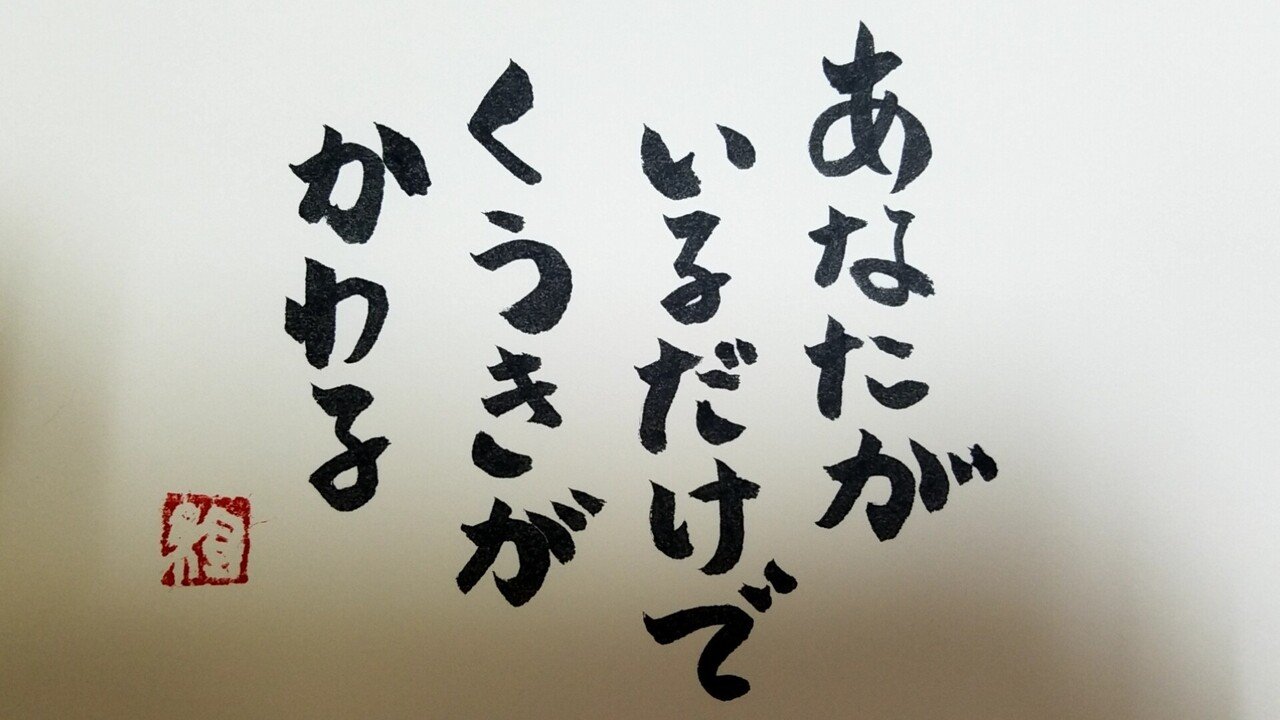 あなたが
いるだけで
くうきが
かわる